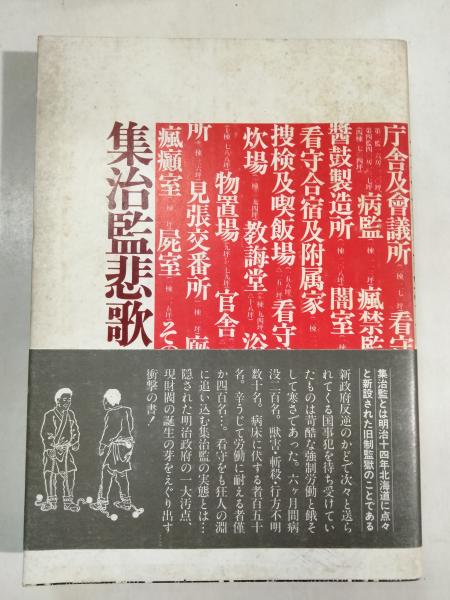 集治監悲歌
庁舎及會議所
看守
第一監
病監
瘋禁監
醬鼓製造所
闇室
看守合宿及附属家
捜檢及喫飯場
看守
炊場
教誨堂
浴
物置場
官舎
所
見張交番所
廨
瘋癲室
屍室
その
集治監とは明治十四年北海道に点々
と新設された旧制監獄のことである
新政府反逆のかどで次々と送ら
れてくる国事犯を待ち受けてい
たものは苛酷な強制労働と餓そ
して寒さであった。六ヶ月間病
没二百名。獣害・斬殺・行方不明
数十名。病床に伏する者百五十
名。辛うじて労働に耐える者僅
か四百名…。看守をも狂人の淵
に追い込む集治監の実態とは…
隠された明治政府の一大汚点、
現財閥の誕生の芽をえぐり出す
衝撃の書！